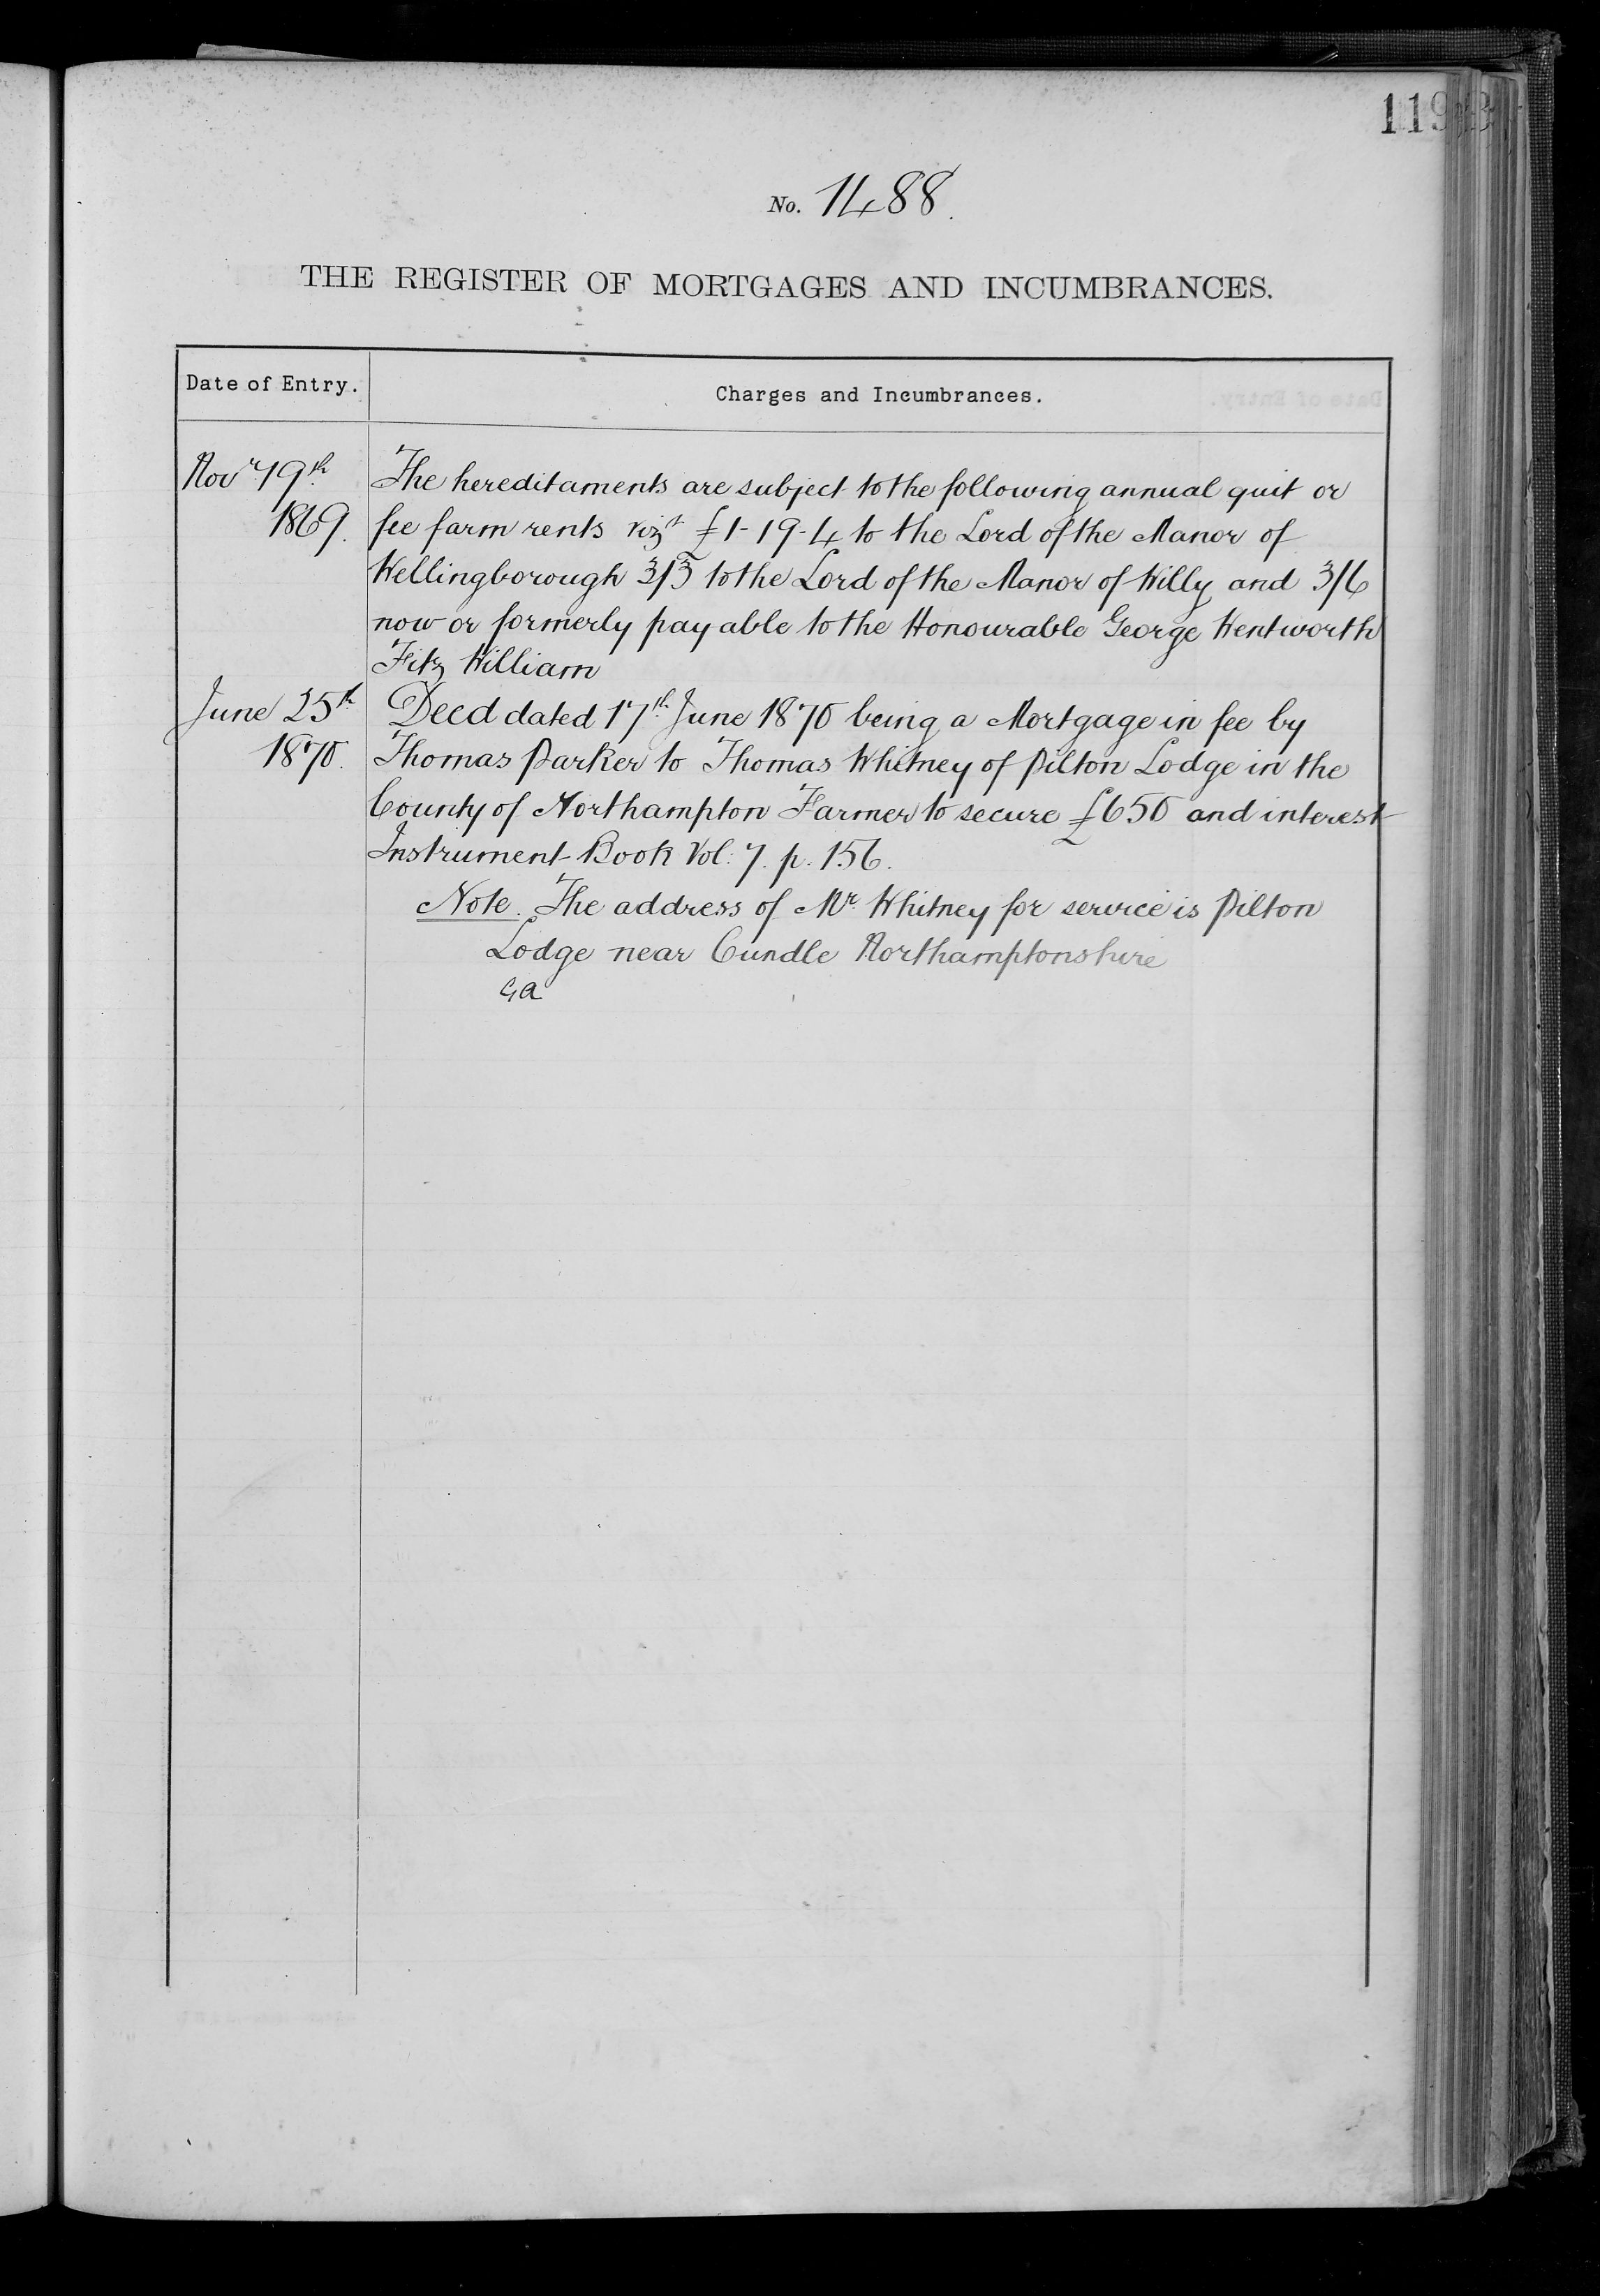 No. 1488.
THE REGISTER OF MORTGAGES AND INCUMBRANCES.
Date of Entry.
Charges and Incumbrances.
Novr. 19th
1869.
The hereditaments are subject to the following annual quit or
fee farm rents vizt £1-19-4 to the Lord of the Manor of
Wellingborough 3/3 to the Lord of the Manor of Willy and 3/6
now or formerly payable to the Honourable George Wentworth
Fitz William
June 25th
1870.
Deed dated 17th June 1870 being a Mortgage in fee by
Thomas Parker to Thomas Whitney of Pilton Lodge in the
County of Northampton Farmer to secure £650 and interest
Instrument Book Vol: 7. p. 156.
Note. The address of Mr. Whitney for service is Pilton
Lodge near Oundle Northamptonshire
GA